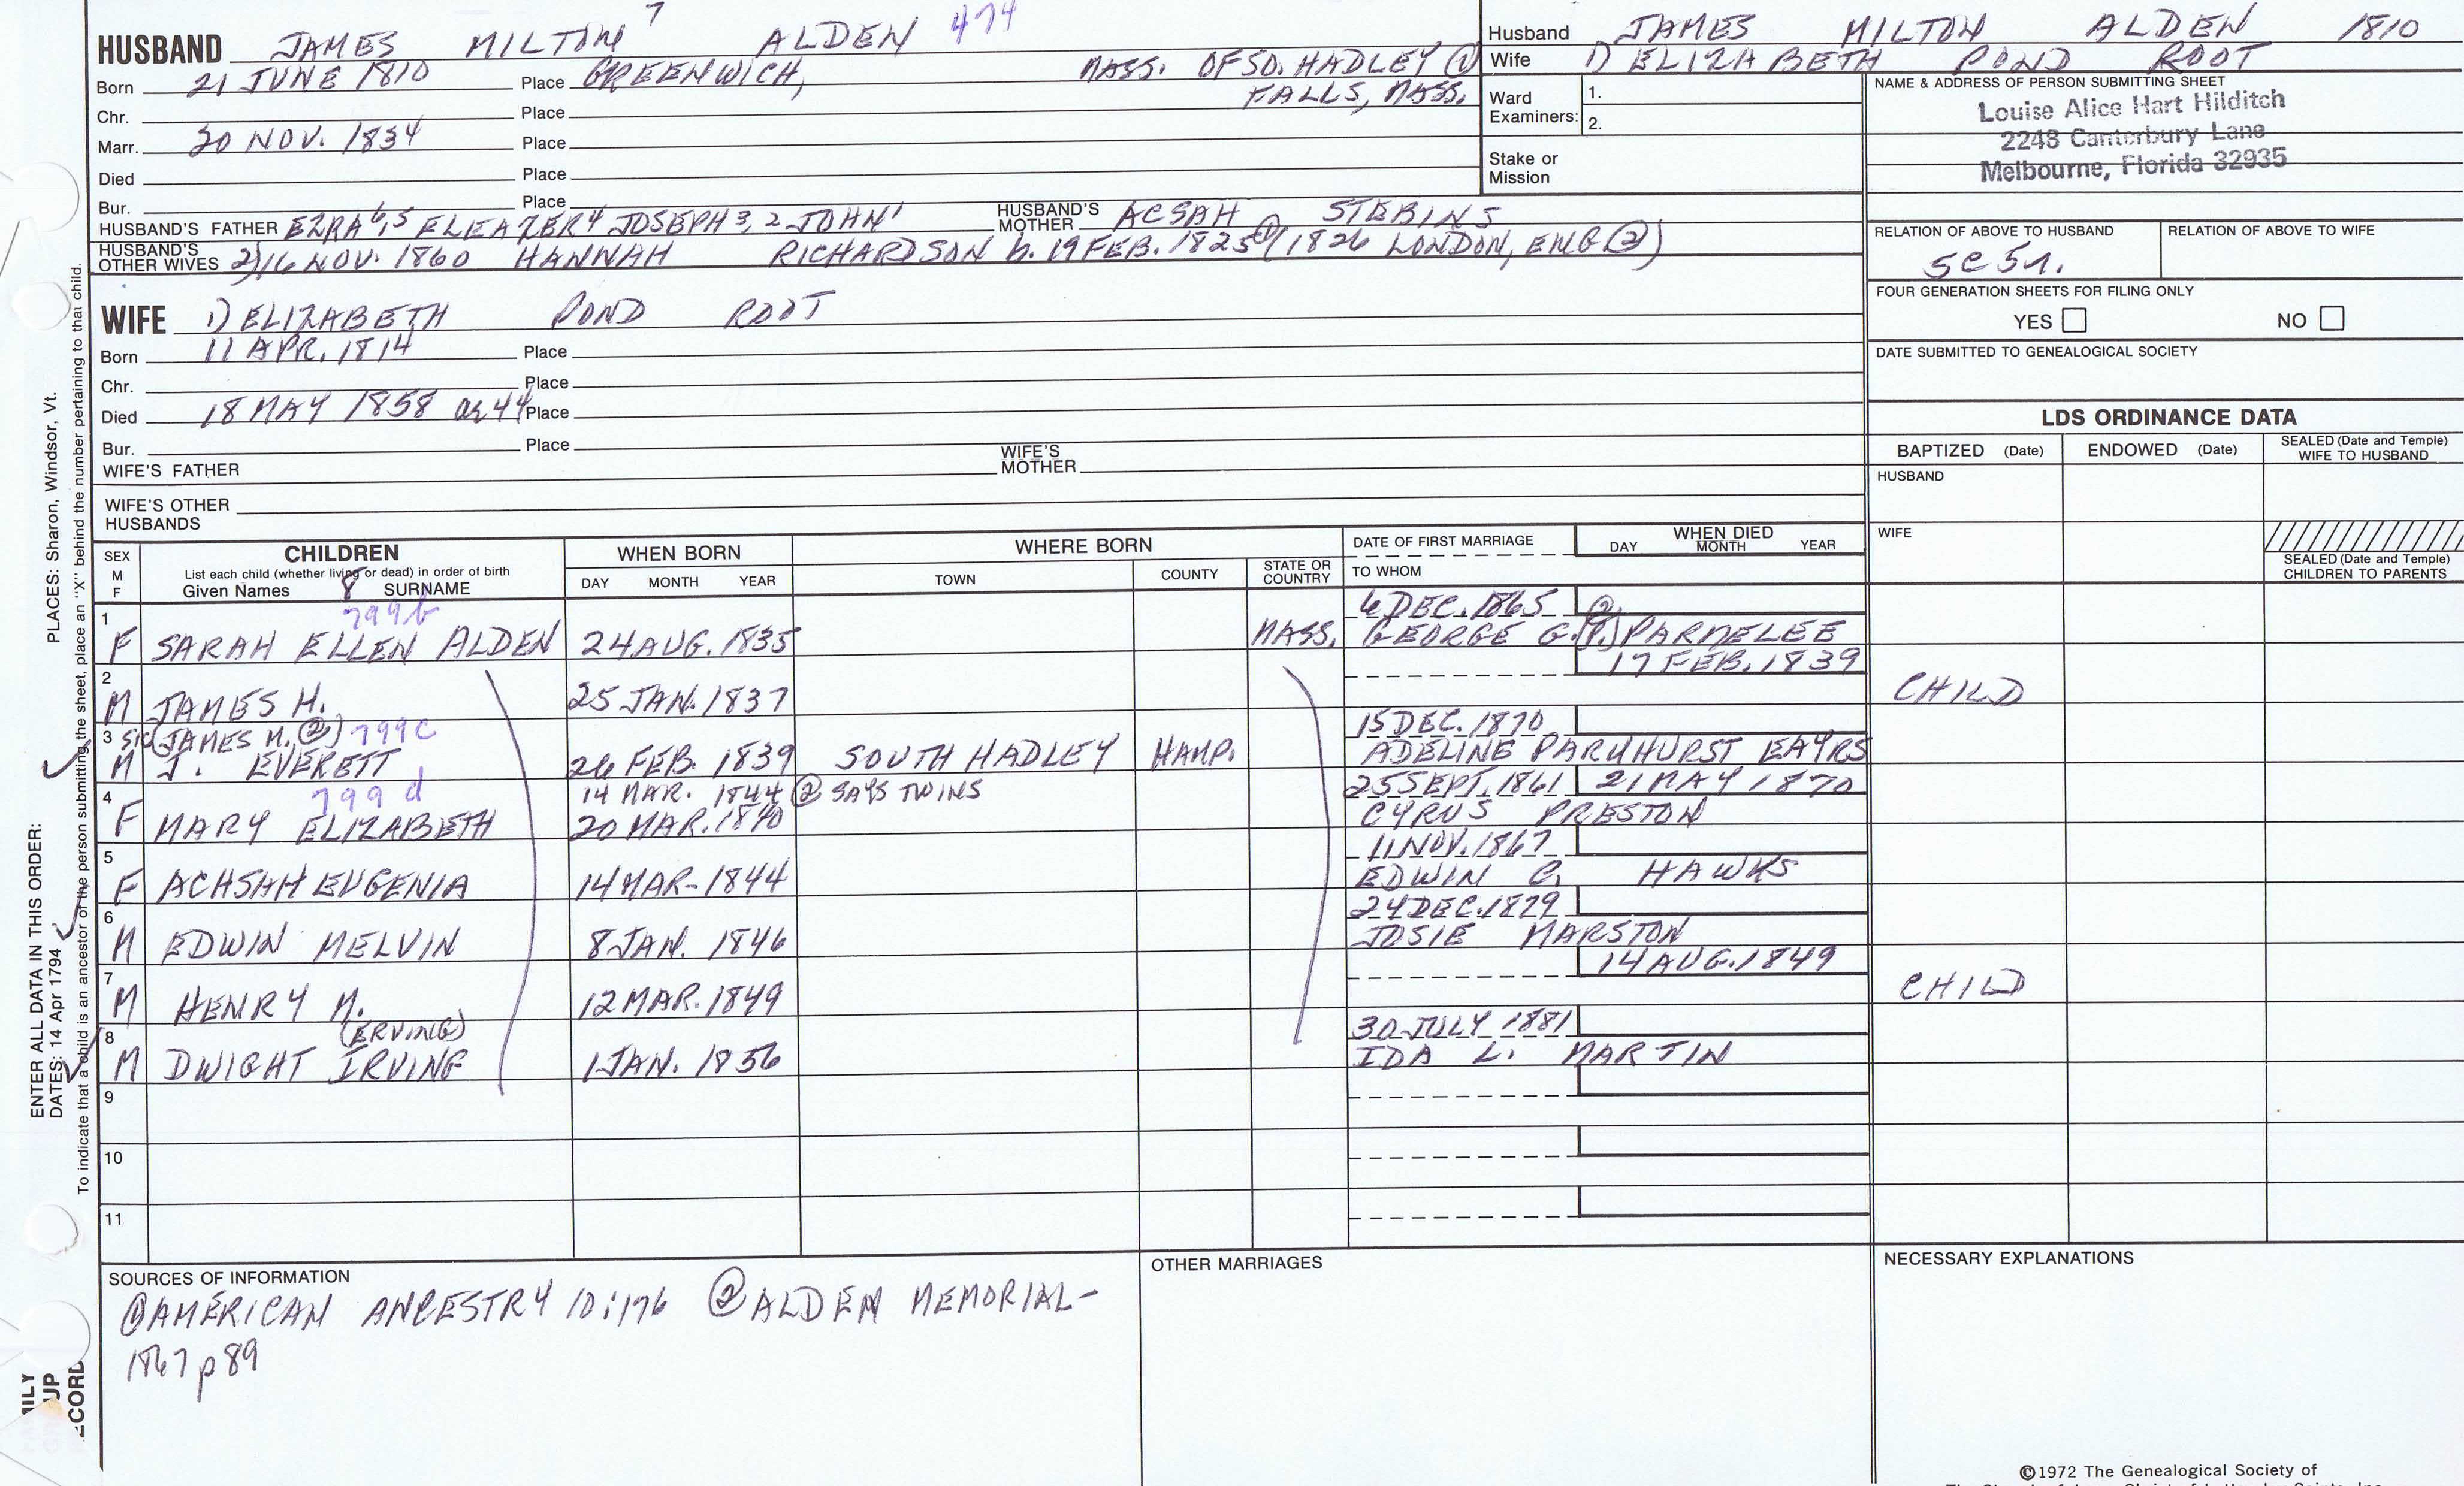 HUSBAND JAMES MILTON 7 ALDEN 474
Born 21 JUNE 1810 Place GREENWICH, MASS. OF SO. HADLEY ①
FALLS, MASS.
Chr. Place
Marr. 20 NOV. 1834 Place
Died Place
Bur. Place
HUSBAND'S FATHER EZRA 6,5 ELEAZER 4 JOSEPH 3,2 JOHN 1 HUSBAND'S MOTHER ACSAH STEBINS
HUSBAND'S OTHER WIVES 2) 16 NOV. 1860 HANNAH RICHARDSON b. 19 FEB. 1825 ① (1826 LONDON, ENG ②)
WIFE 1) ELIZABETH POND ROOT
Born 11 APR. 1814 Place
Chr. Place
Died 18 MAY 1858 ag 44 Place
Bur. Place
WIFE'S FATHER WIFE'S MOTHER
WIFE'S OTHER HUSBANDS
Husband JAMES MILTON ALDEN 1810
Wife 1) ELIZABETH POND ROOT
Ward Examiners: 1.
2.
Stake or Mission
NAME & ADDRESS OF PERSON SUBMITTING SHEET
Louise Alice Hart Hilditch
2248 Canterbury Lane
Melbourne, Florida 32935
RELATION OF ABOVE TO HUSBAND RELATION OF ABOVE TO WIFE
5c 5r.
FOUR GENERATION SHEETS FOR FILING ONLY
YES NO
DATE SUBMITTED TO GENEALOGICAL SOCIETY
LDS ORDINANCE DATA
BAPTIZED (Date) ENDOWED (Date) SEALED (Date and Temple) WIFE TO HUSBAND
HUSBAND
WIFE
SEALED (Date and Temple) CHILDREN TO PARENTS
SEX M F CHILDREN WHEN BORN WHERE BORN DATE OF FIRST MARRIAGE WHEN DIED
List each child (whether living or dead) in order of birth
Given Names 8 SURNAME DAY MONTH YEAR TOWN COUNTY STATE OR COUNTRY TO WHOM DAY MONTH YEAR
799b 6 DEC. 1865 ②
1 F SARAH ELLEN ALDEN 24 AUG. 1835 MASS. GEORGE G.(P.) PARMELEE
17 FEB. 1839
2 M JAMES H. 25 JAN. 1837 CHILD
SIC (JAMES M. ②) 799c 15 DEC. 1870
3 M J. EVERETT 26 FEB. 1839 SOUTH HADLEY HAMP. ADELINE PARKHURST EAYRS
799d 14 MAR. 1844 ② SAYS TWINS 25 SEPT. 1861 21 MAY 1870
4 F MARY ELIZABETH 20 MAR. 1840 CYRUS PRESTON
11 NOV. 1867
5 F ACHSAH EUGENIA 14 MAR- 1844 EDWIN C. HAWKS
24 DEC. 1879
6 M EDWIN MELVIN 8 JAN. 1846 JOSIE MARSTON
14 AUG. 1849
7 M HENRY M. 12 MAR. 1849 CHILD
(ERVING) 30 JULY 1881
8 M DWIGHT IRVING 1 JAN. 1856 IDA L. MARTIN
9
10
11
SOURCES OF INFORMATION
① AMERICAN ANCESTRY 10:176 ② ALDEN MEMORIAL-
1867 p 89
OTHER MARRIAGES
NECESSARY EXPLANATIONS
©1972 The Genealogical Society of
ENTER ALL DATA IN THIS ORDER:
DATES: 14 Apr 1794 PLACES: Sharon, Windsor, Vt.
To indicate that a child is an ancestor of the person submitting the sheet, place an "X" behind the number pertaining to that child.